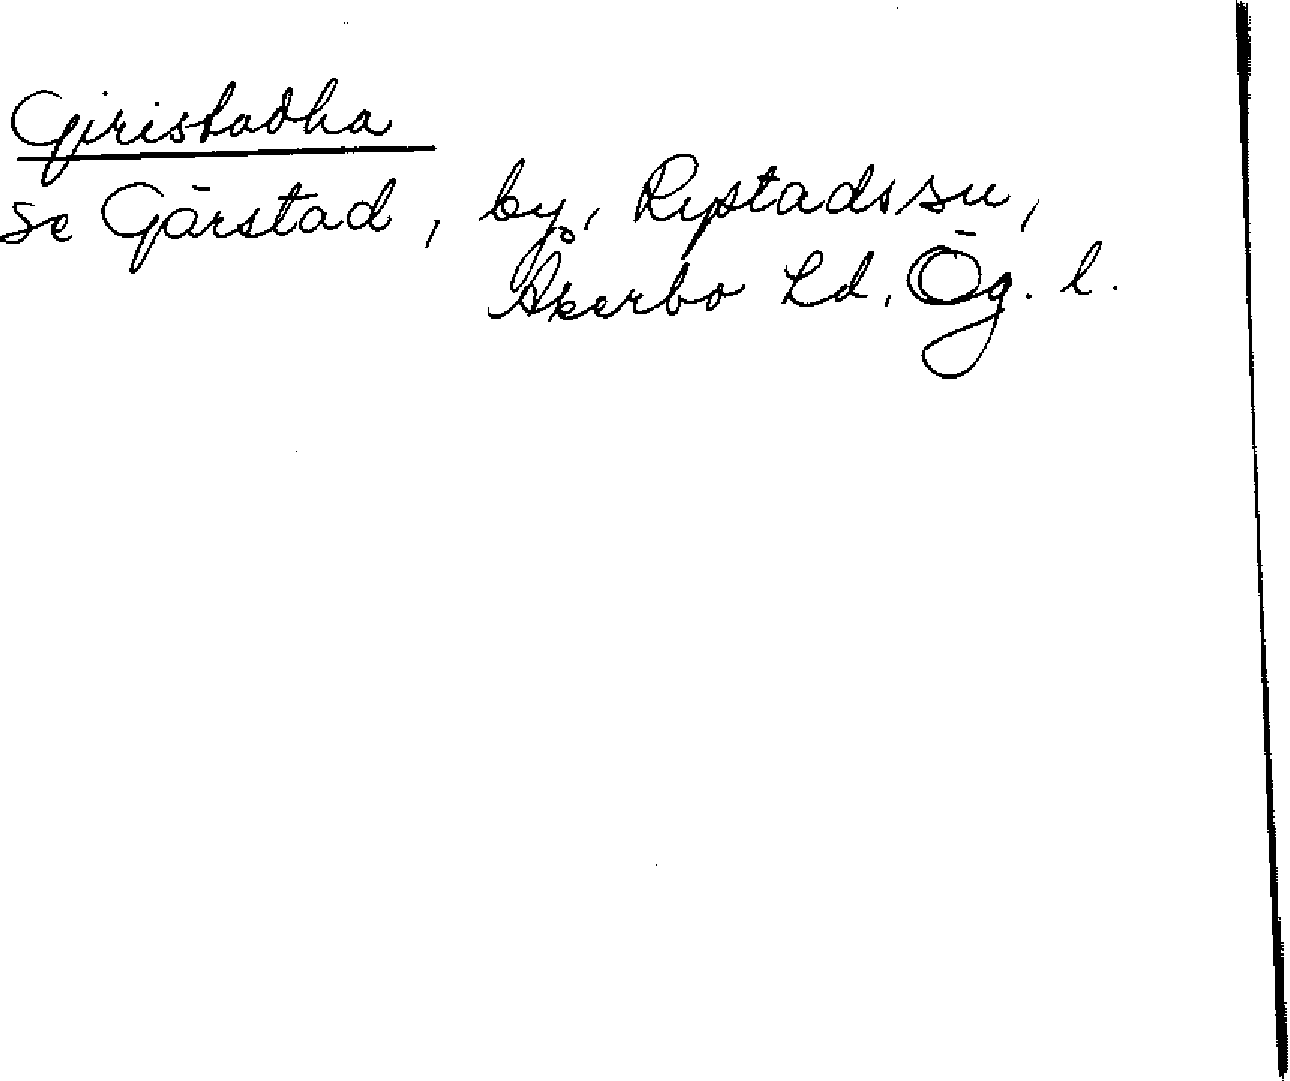 Giristadha
se Gärstad, by, Rystads sn,
Åkerbo hd, Ög. l.